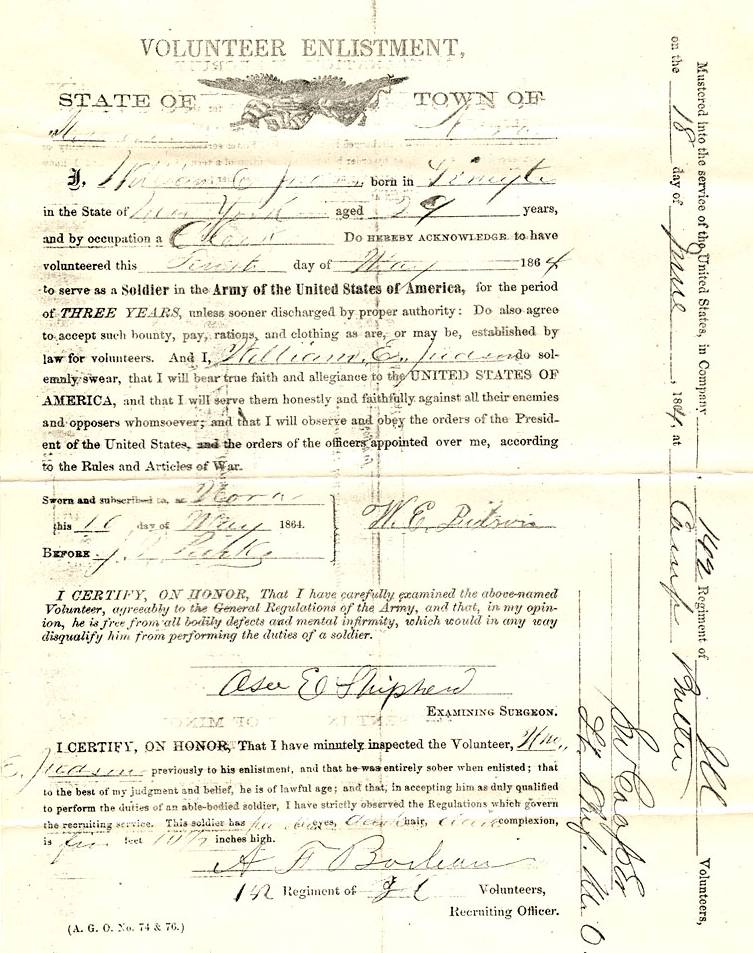 VOLUNTEER ENLISTMENT,
STATE OF TOWN OF
Nora
I, William E. Judson born in
in the State of New York aged 29 years,
and by occupation a Clerk Do HEREBY ACKNOWLEDGE to have
volunteered this day of May 1864
to serve as a Soldier in the Army of the United States of America, for the period
of THREE YEARS, unless sooner discharged by proper authority: Do also agree
to accept such bounty, pay, rations, and clothing as are, or may be, established by
law for volunteers. And I, William E. Judson do sol-
emnly swear, that I will bear true faith and allegiance to the UNITED STATES OF
AMERICA, and that I will serve them honestly and faithfully against all their enemies
and opposers whomsoever; and that I will observe and obey the orders of the Presid-
ent of the United States, and the orders of the officers appointed over me, according
to the Rules and Articles of War.
Sworn and subscribed to, at Nora
this 10 day of May 1864.
W. E.
BEFORE
I CERTIFY, ON HONOR, That I have carefully examined the above-named
Volunteer, agreeably to the General Regulations of the Army, and that, in my opin-
ion, he is free from all bodily defects and mental infirmity, which would in any way
disqualify him from performing the duties of a soldier.
EXAMINING SURGEON.
I CERTIFY, ON HONOR, That I have minutely inspected the Volunteer, Wm.
E. Judson previously to his enlistment, and that he was entirely sober when enlisted; that
to the best of my judgment and belief, he is of lawful age; and that, in accepting him as duly qualified
to perform the duties of an able-bodied soldier, I have strictly observed the Regulations which govern
the recruiting service. This soldier has eyes, dark hair, complexion,
is five feet inches high.
A F
142 Regiment of Ill Volunteers,
Recruiting Officer.
(A. G. O. No. 74 & 76.)
Mustered into the service of the United States, in Company 142 Regiment of Ill Volunteers,
on the 18 day of June, 1864, at Camp Butler